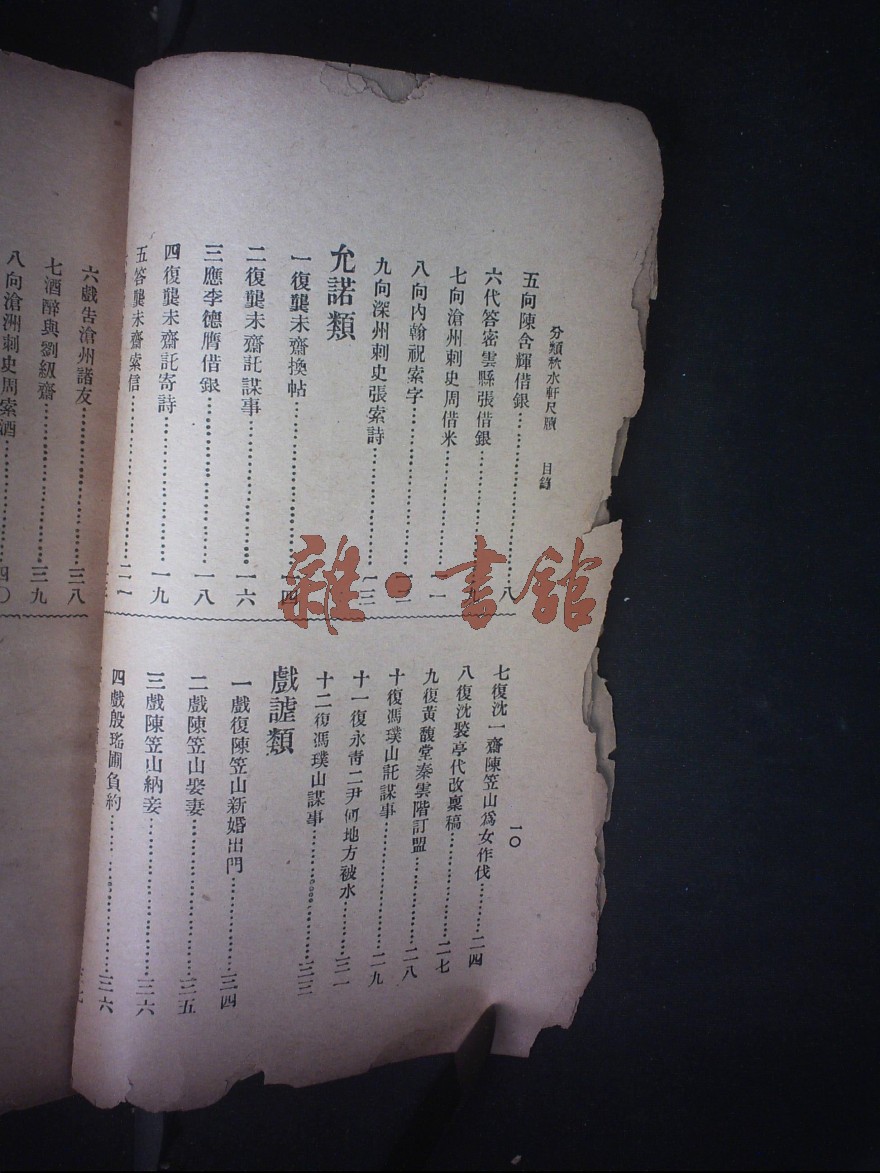 分類秋水軒尺牘 目錄 一〇
五向陳含輝借銀……八
六代答密雲縣張借銀……九
七向滄州刺史周借米……一一
八向內翰祝索字……一二
九向深州刺史張索詩……一三
允諾類
一復龔未齋換帖……一四
二復龔未齋託謀事……一六
三應李德膺借銀……一八
四復龔未齋託寄詩……一九
五答龔未齋索信……二一
七復沈一齋陳笠山為女作伐……二四
八復沈裝亭代改稟稿……二七
九復黃馥堂秦雲階訂盟……二八
十復馮璞山託謀事……二九
十一復永青二尹何地方被水……三一
十二復馮璞山謀事……三三
戲謔類
一戲復陳笠山新婚出門……三四
二戲陳笠山娶妻……三五
三戲陳笠山納妾……三六
四戲殷瑤圃負約……三六
六戲告滄州諸友……三八
七酒醉與劉級齋……三九
八向滄洲刺史周索酒……四〇
雜·書館